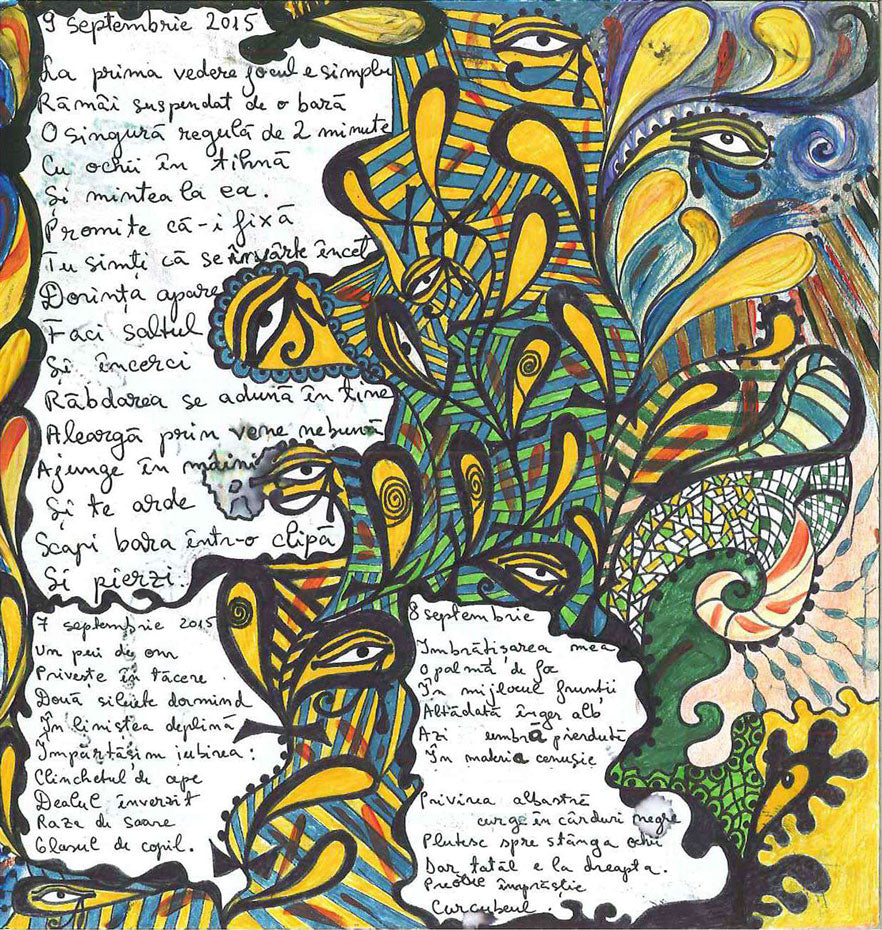 9 septembrie 2015
La prima vedere jocul e simplu
Rămâi suspendat de o bară
O singură regulă de 2 minute
Cu ochii în tihnă
Și mintea la ea.
Promite că-i fixă
Tu simți că se învârte încet
Dorința apare
Faci saltul
Și încerci
Răbdarea se adună în tine
Aleargă prin vene nebună
Ajunge în mâini
Și te arde
Scapi bara într-o clipă
Și pierzi.
7 septembrie 2015
Un pui de om
Privește în tăcere
Două siluete dormind
În liniștea deplină
Împărtășim iubirea.
Clinchetul de ape
Dealul înverzit
Raze de soare
Glasul de copil.
8 septembrie
Îmbrățișarea mea
O palmă de foc
În mijlocul frunții
Altădată înger alb
Azi umbra pierdută
În materia cenușie
Privirea albastră
curge în cârduri negre
Plutesc spre stânga ochi
Dar tatăl e la dreapta.
împrăștie
Curcubeul.